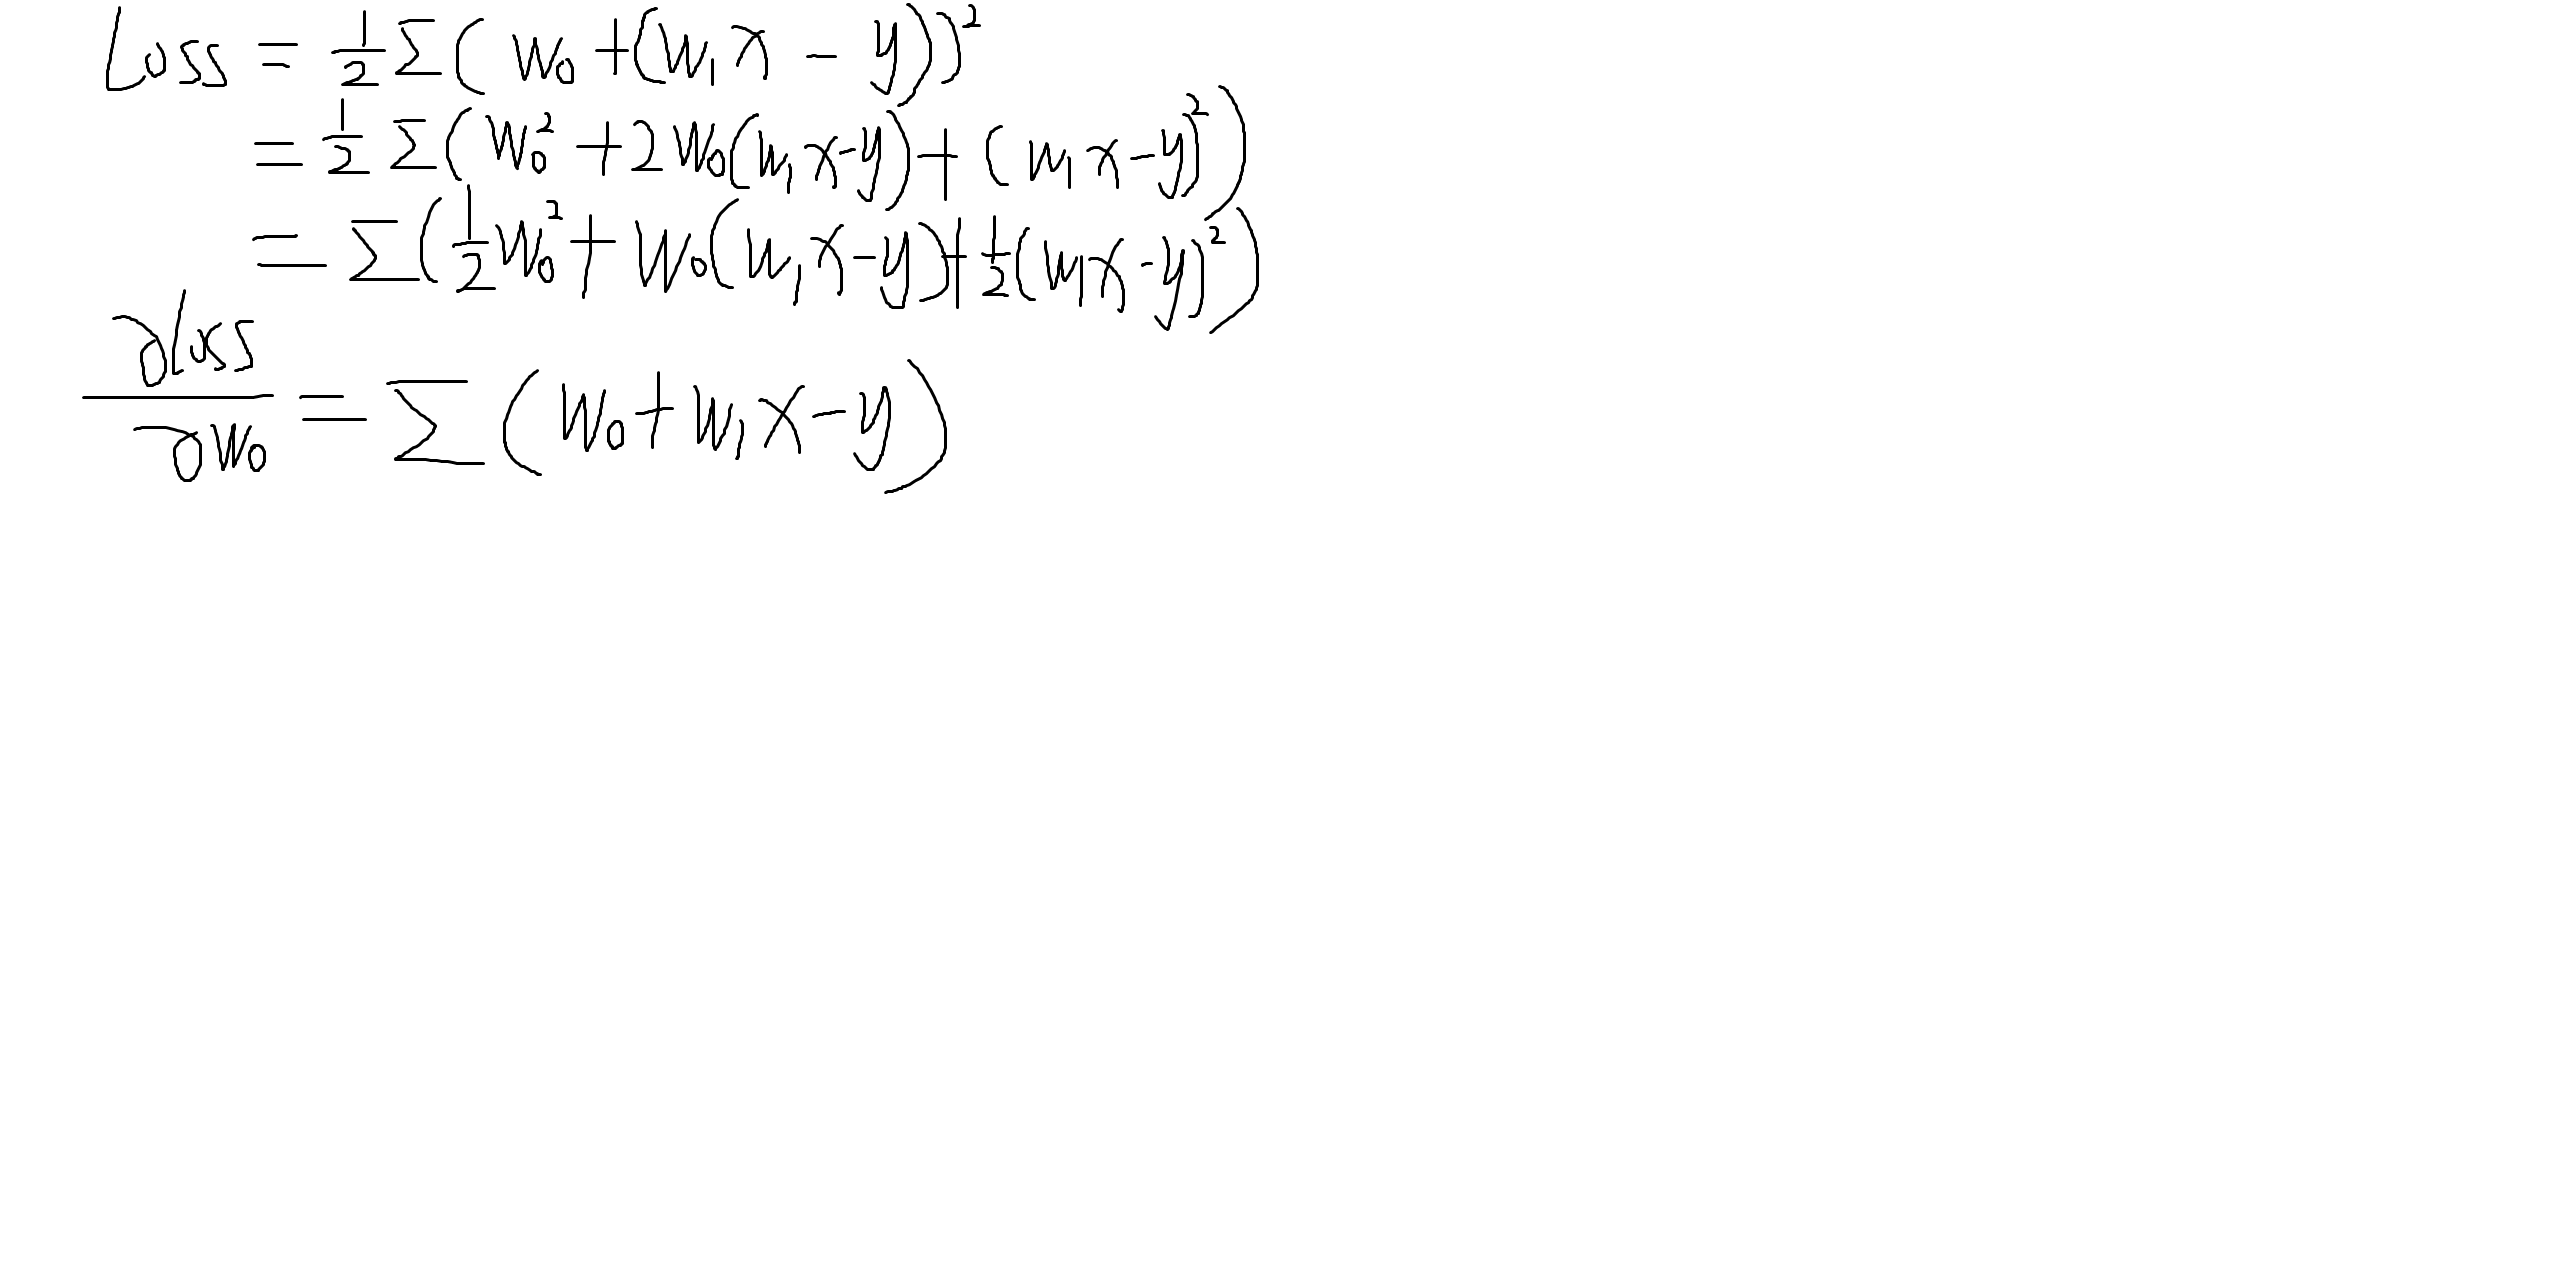 Loss = 1/2 Σ( w₀ + (w₁x - y))²
= 1/2 Σ(w₀² + 2w₀(w₁x-y) + (w₁x-y)²)
= Σ(1/2 w₀² + w₀(w₁x-y) + 1/2(w₁x-y)²)
∂loss/∂w₀ = Σ(w₀ + w₁x - y)